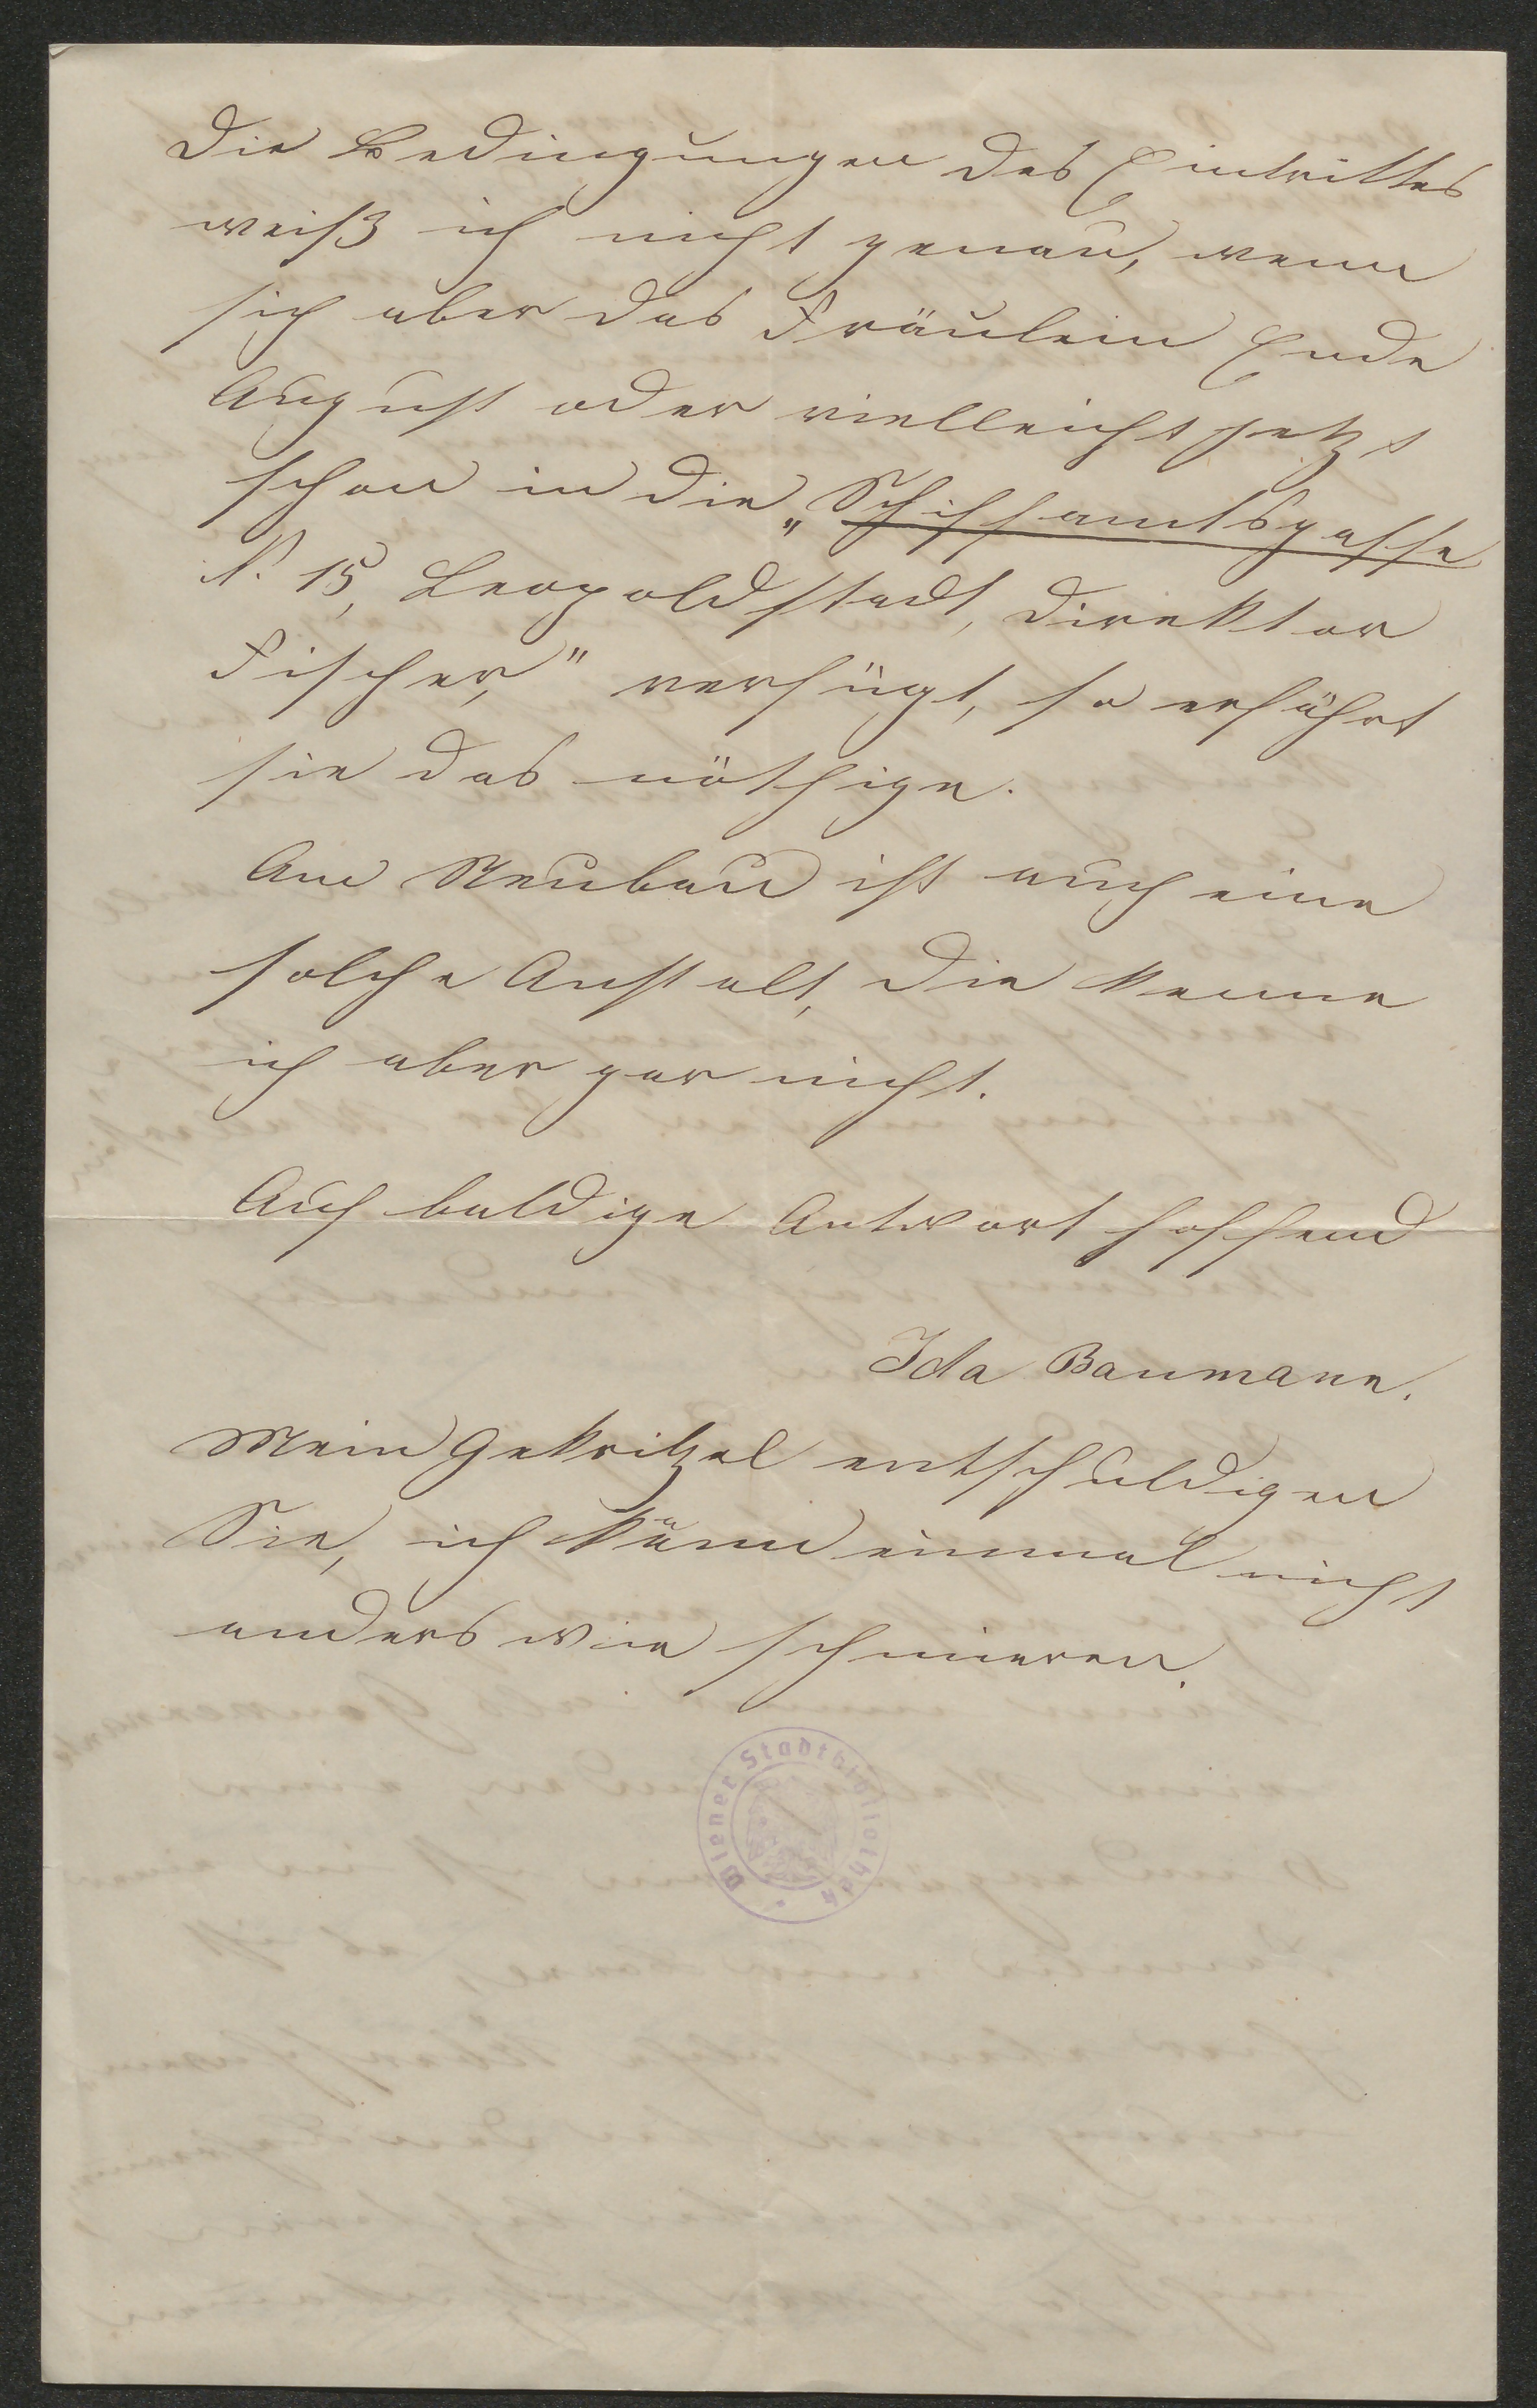 Die Bedingungen des Eintrittes
weiß ich nicht genau, wenn
sich aber das Fräulein Ende
August oder vielleicht jetzt
schon in die „Schiffamtsgasse
N. 15, Leopoldstadt, Direktor
Fischer,“ verfügt, so erfährt
sie das nöthige.
Am Neubau ist auch eine
solche Anstalt, die kenne
ich aber gar nicht.
Auf baldige Antwort hoffend
Ida Baumann.
Mein Gekritzel entschuldigen
Sie, ich kann einmal nicht
anders wie schmieren.
Wiener Stadtbibliothek